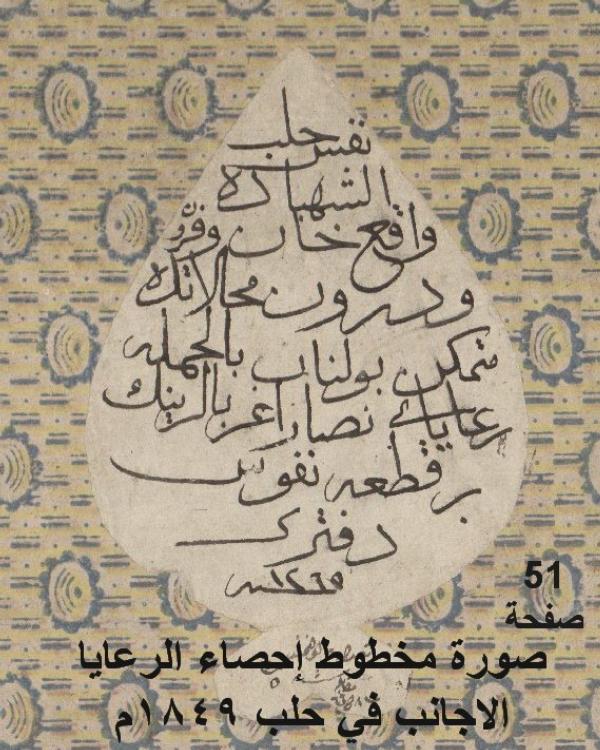 نفس حلب
الشهباده
واقع خان وقرّ
ودرون محالاتنده
متمكن بولنان بالجمله
رعايائ نصارا
برقطعه نفوس
دفترى
سنه ١٢٦٥
51
صفحة
صورة مخطوط إحصاء الرعايا
الاجانب في حلب ١٨٤٩م